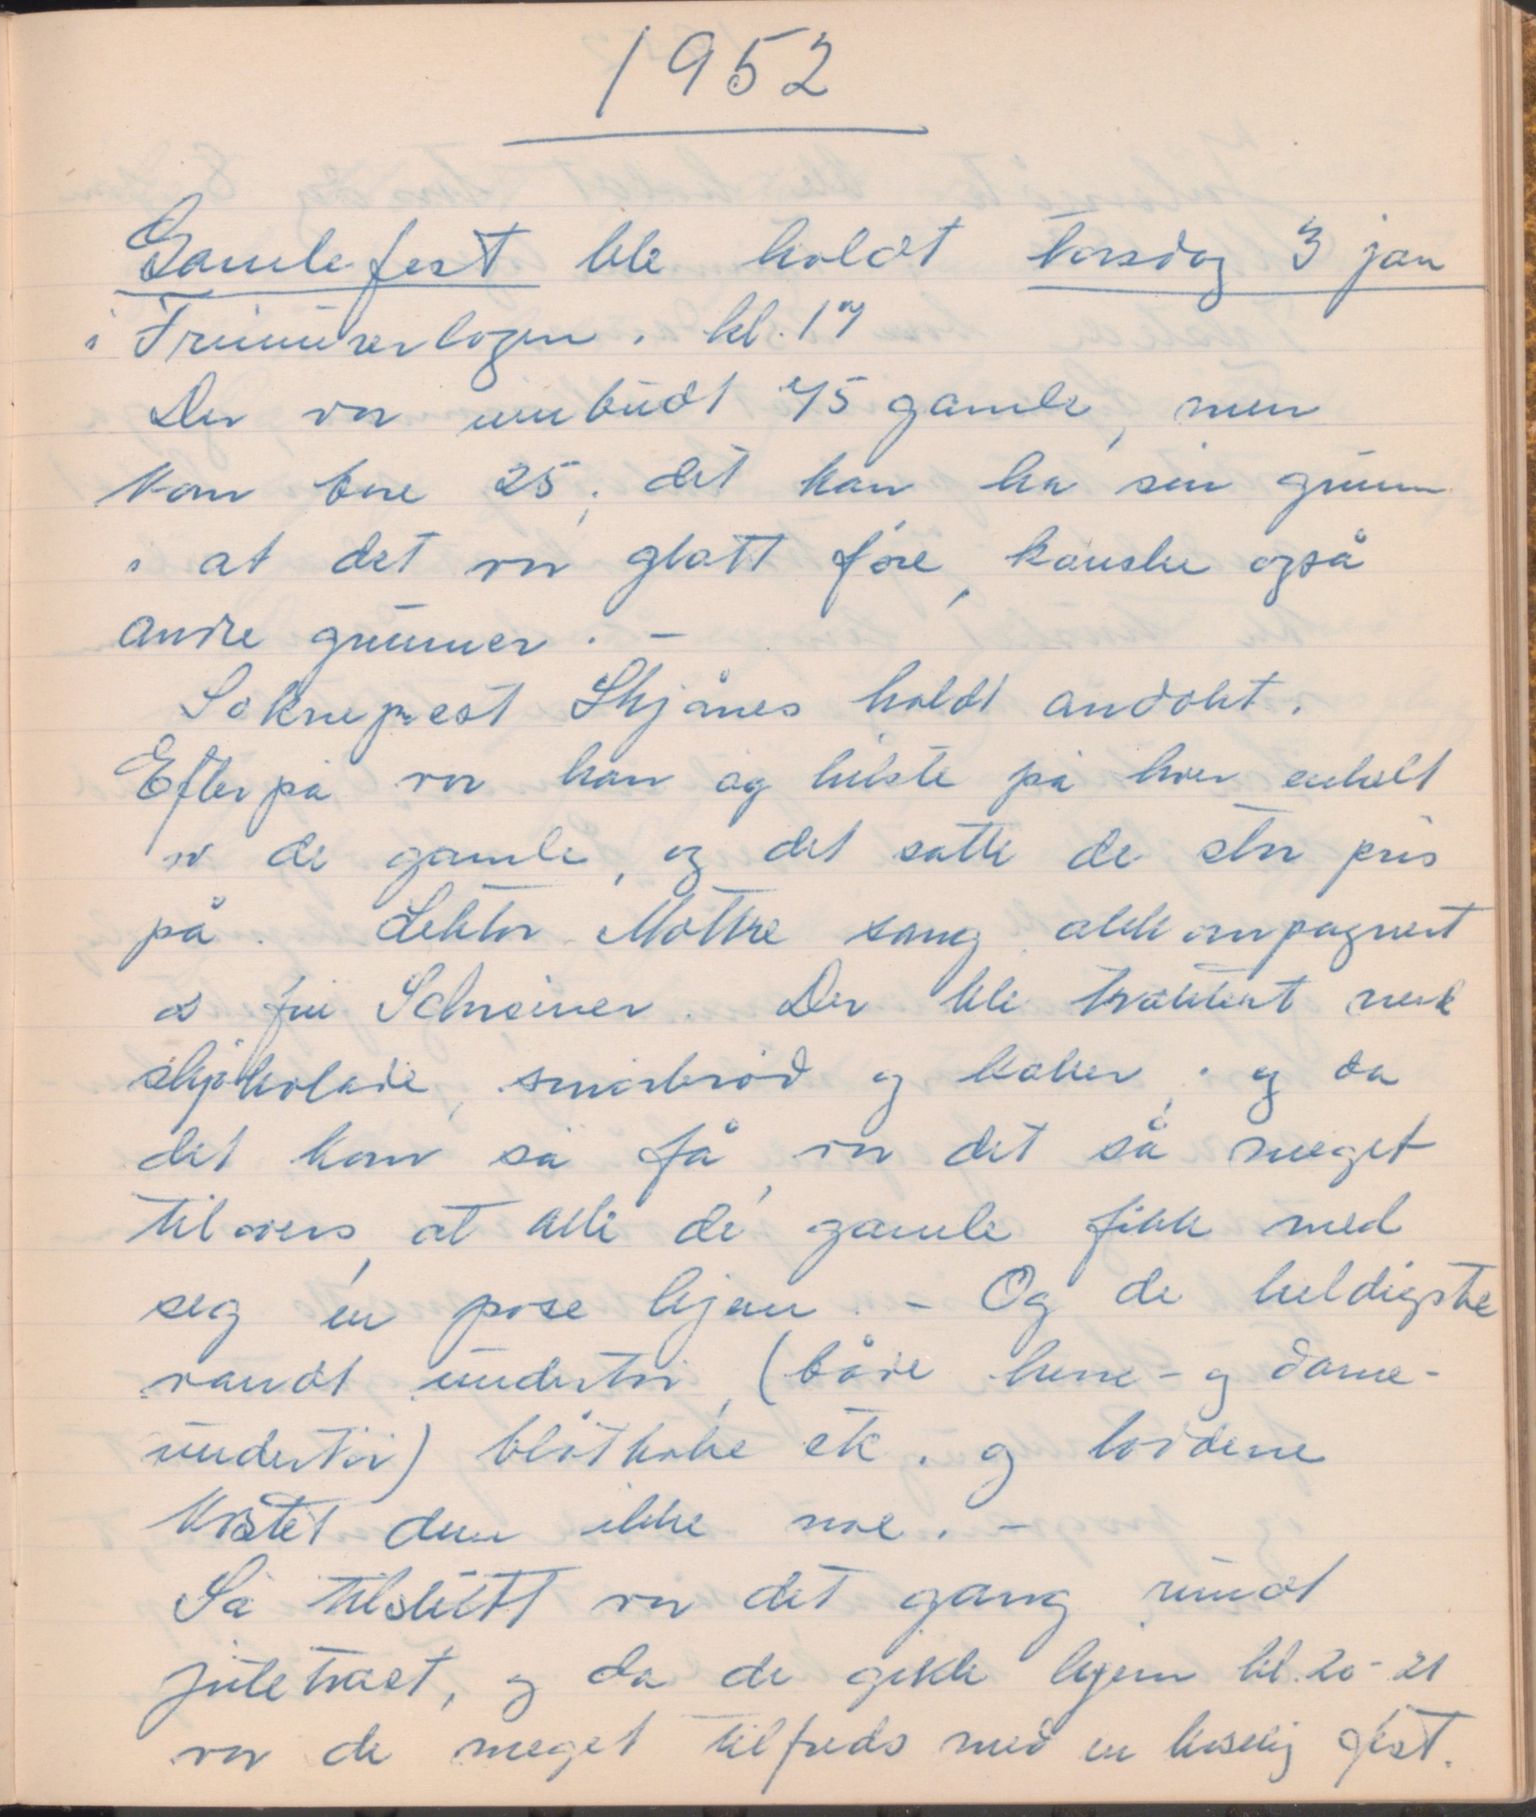 1952
Gamlefest ble holdt torsdag 3 jan
i Frimurerlogen. kl. 17
Der var innbudt 75 gamle, men
kom bare 25; det kan ha sin grunn
i at det var glatt føre, kanskje også
andre grunner. –
Sokneprest Skjånes holdt andakt.
Efterpå var han og hilste på hver enkelt
av de gamle, og det satte de stor pris
på. Lektor Møttre sang akkompagnert
av fru Schreiner. Der ble traktert med
skjokolade, smørbrød og kaker; og da
det kom så få, var det så meget
tilovers, at alle de gamle fikk med
seg en pose hjem. – Og de heldigste
vandt undertøi, (både herre- og dame-
undertøi) bløtkake etc. og loddene
kostet dem ikke noe. –
Så tilslutt var det gang rundt
juletræet, og da de gikk hjem kl. 20-21
var de meget tilfreds med en koselig fest.